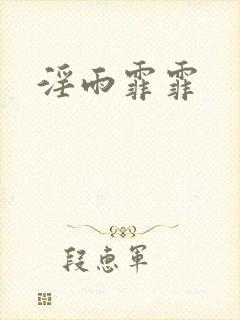 淫雨霏霏
段惠军